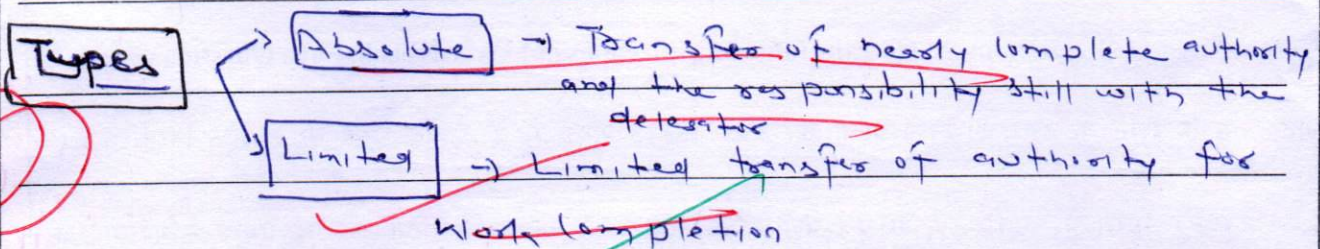 Types → Absolute → Transfer of nearly complete authority
and the responsibility still with the
delegator
→ Limited → Limited transfer of authority for
work completion